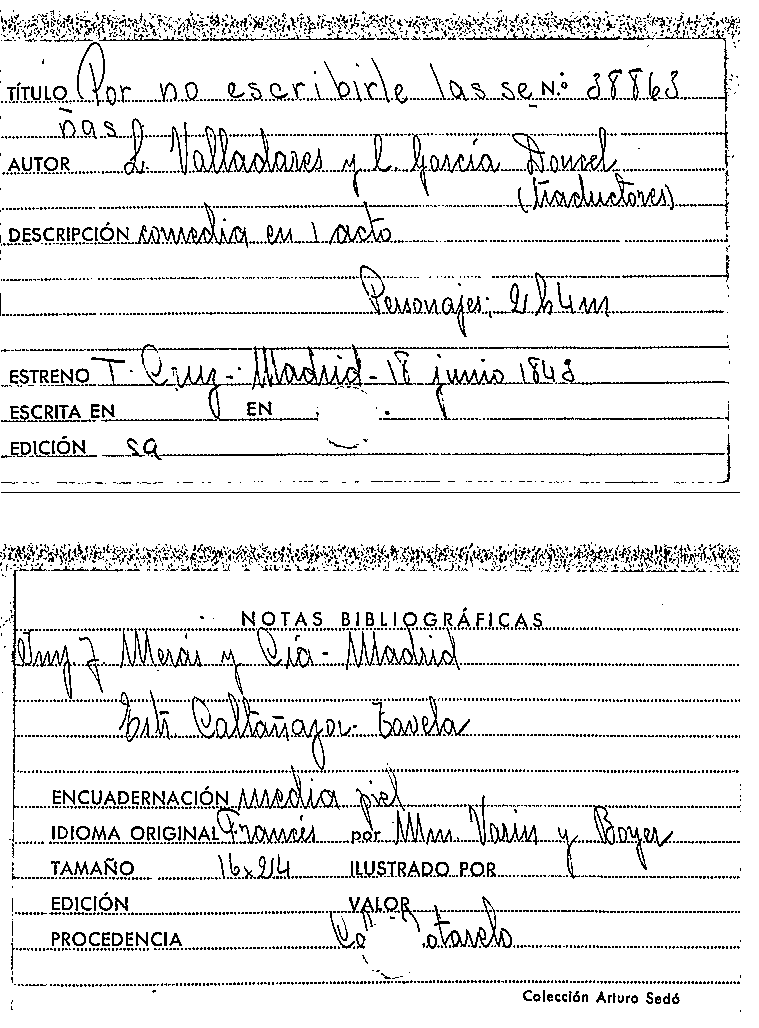 TÍTULO Por no escribirle las se N.º 38863
ñas
AUTOR L. Valladares y C. García Doncel
(traductores)
DESCRIPCIÓN comedia en 1 acto
Personajes: 2h4m
ESTRENO T. Cruz - Madrid - 18 junio 1843
ESCRITA EN EN
EDICIÓN sa
NOTAS BIBLIOGRÁFICAS
Imp J. Merás y Cía - Madrid
Estr. Caltañazor - Tavela
ENCUADERNACIÓN media piel
IDIOMA ORIGINAL Francés por Mm. Varin y Boyer
TAMAÑO 16x24 ILUSTRADO POR
EDICIÓN VALOR
PROCEDENCIA
Colección Arturo Sedó